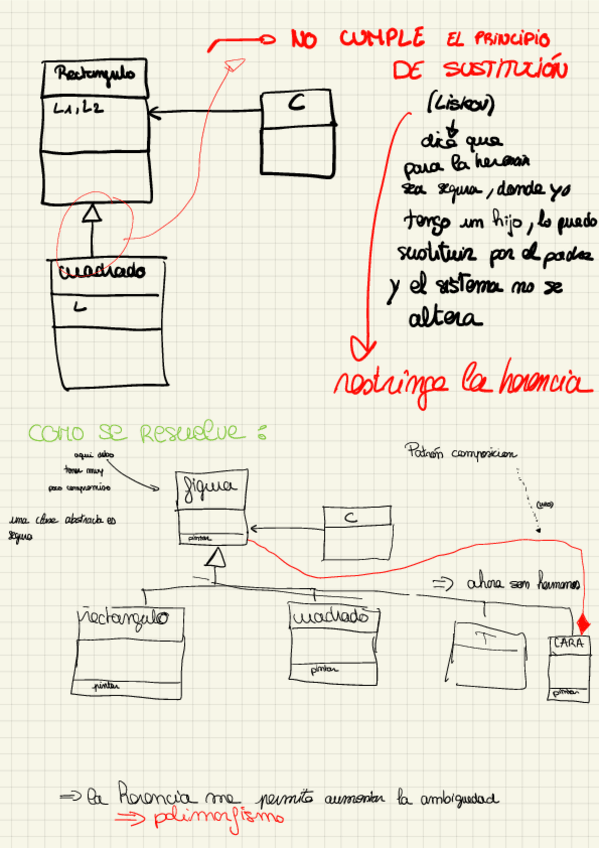 NO CUMPLE EL PRINCIPIO
DE SUSTITUCIÓN
(Liskov)
dice que
para la herencia
sea segura, donde yo
tengo un hijo, lo puedo
sustituir por el padre
y el sistema no se
altera
restringe la herencia
Rectangulo
L1, L2
C
cuadrado
L
COMO SE RESUELVE:
aqui debo
tener muy
poco compromiso
una clase abstracta es
segura
figura
pintar
C
Patrón composicion
⇒ ahora son hermanos
rectangulo
pintar
cuadrado
pintar
T
CARA
pintar
⇒ la herencia me permite aumentar la ambiguedad
⇒ polimorfismo